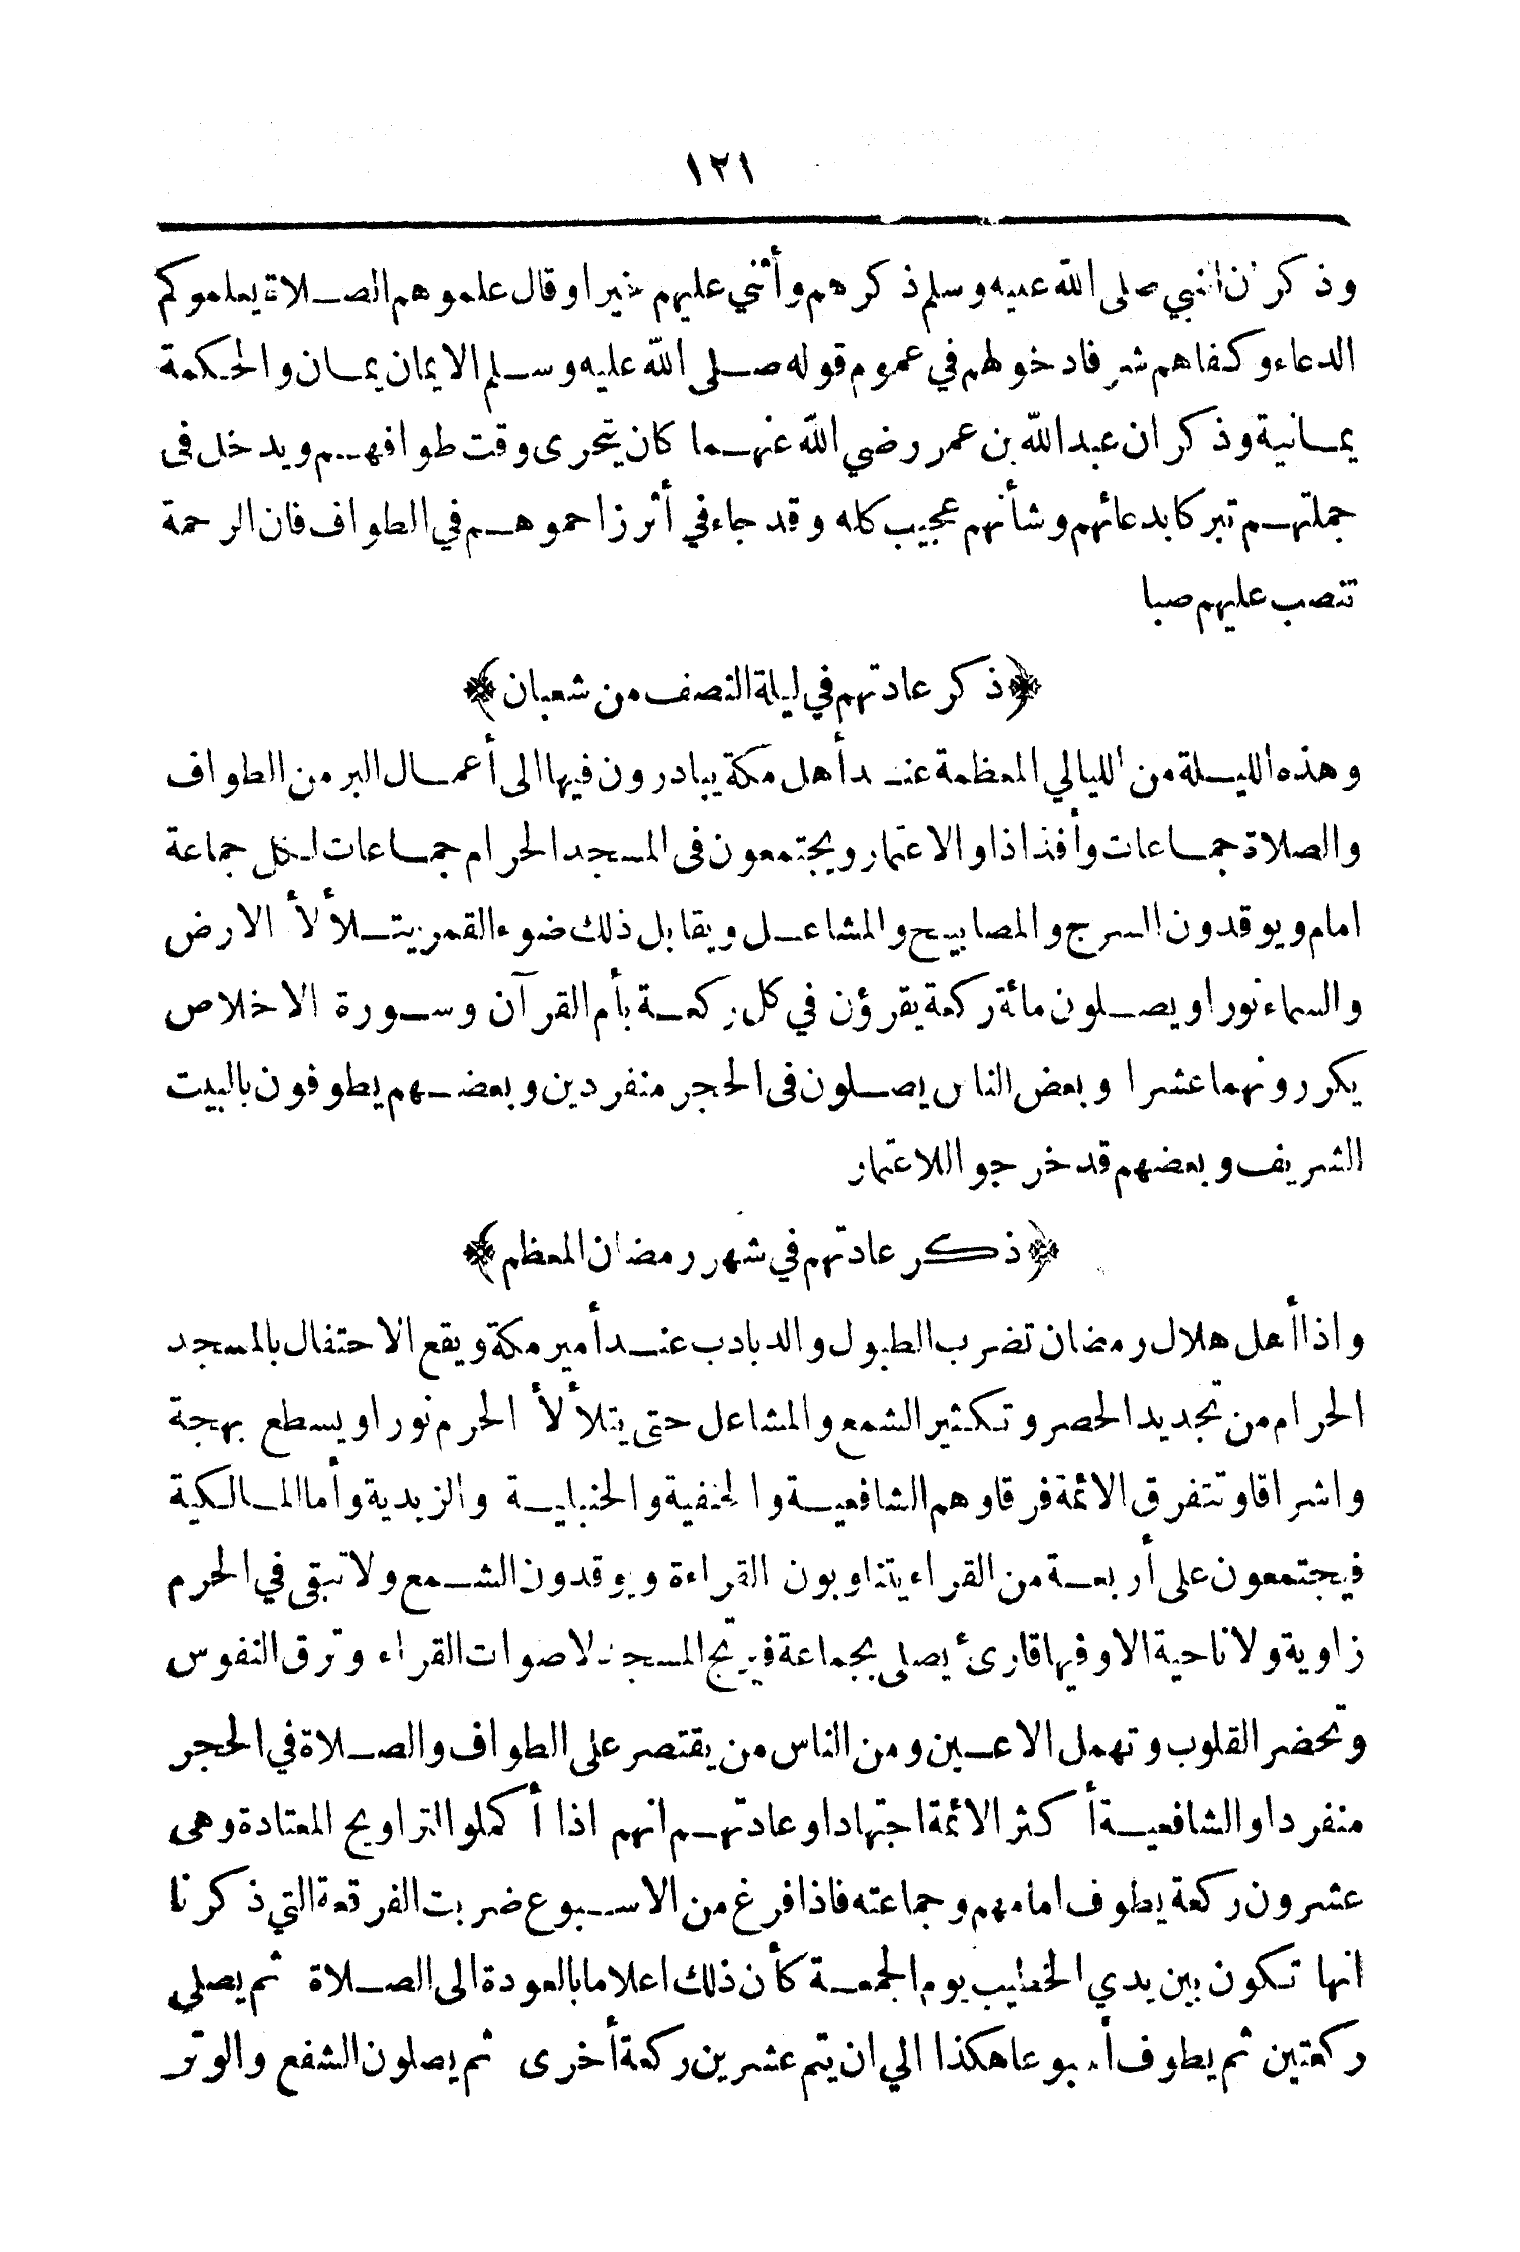 ١٢١
وذكر أن النبي صلى الله عليه وسلم ذكرهم وأثنى عليهم خيرا وقال علموهم الصلاة يعلموكم
الدعاء وكفاهم شرفا دخولهم في عموم قوله صلى الله عليه وسلم الايمان يمان والحكمة
يمانية وذكر ان عبد الله بن عمر رضي الله عنهما كان يتحرى وقت طوافهم ويدخل في
جملتهم تبركا بدعائهم وشأنهم عجيب كله وقد جاء في أثر زاحموهم في الطواف فان الرحمة
تنصب عليهم صبا
﴿ذكر عادتهم في ليلة النصف من شعبان﴾
وهذه الليلة من الليالي المعظمة عند أهل مكة يبادرون فيها الى أعمال البر من الطواف
والصلاة جماعات وأفذاذا والاعتمار ويجتمعون في المسجد الحرام جماعات لكل جماعة
امام ويوقدون السرج والمصابيح والمشاعل ويقابل ذلك ضوء القمر يتلألأ الارض
والسماء نورا ويصلون مائة ركعة يقرؤن في كل ركعة بأم القرآن وسورة الاخلاص
يكررونهما عشرا وبعض الناس يصلون في الحجر منفردين وبعضهم يطوفون بالبيت
الشريف وبعضهم قد خرجوا للاعتمار
﴿ذكر عادتهم في شهر رمضان المعظم﴾
واذا أهل هلال رمضان تضرب الطبول والدبادب عند أمير مكة ويقع الاحتفال بالمسجد
الحرام من تجديد الحصر وتكثير الشمع والمشاعل حتى يتلألأ الحرم نورا ويسطع بهجة
واشراقا وتتفرق الائمة فرقا وهم الشافعية والحنفية والحنبلية والزيدية وأما المالكية
فيجتمعون على أربعة من القراء يتناوبون القراءة ويوقدون الشمع ولا تبقى في الحرم
زاوية ولا ناحية الا وفيها قارئ يصلى بجماعة فيرتج المسجد لاصوات القراء وترق النفوس
وتحضر القلوب وتهمل الاعين ومن الناس من يقتصر على الطواف والصلاة في الحجر
منفردا والشافعية أكثر الائمة اجتهادا وعادتهم انهم اذا أكملوا التراويح المعتادة وهى
عشرون ركعة يطوف امامهم وجماعته فاذا فرغ من الاسبوع ضربت الفرقعة التي ذكرنا
انها تكون بين يدي الخطيب يوم الجمعة كأن ذلك اعلاما بالعودة الى الصلاة ثم يصلي
ركعتين ثم يطوف أسبوعا هكذا الي ان يتم عشرين ركعة أخرى ثم يصلون الشفع والوتر